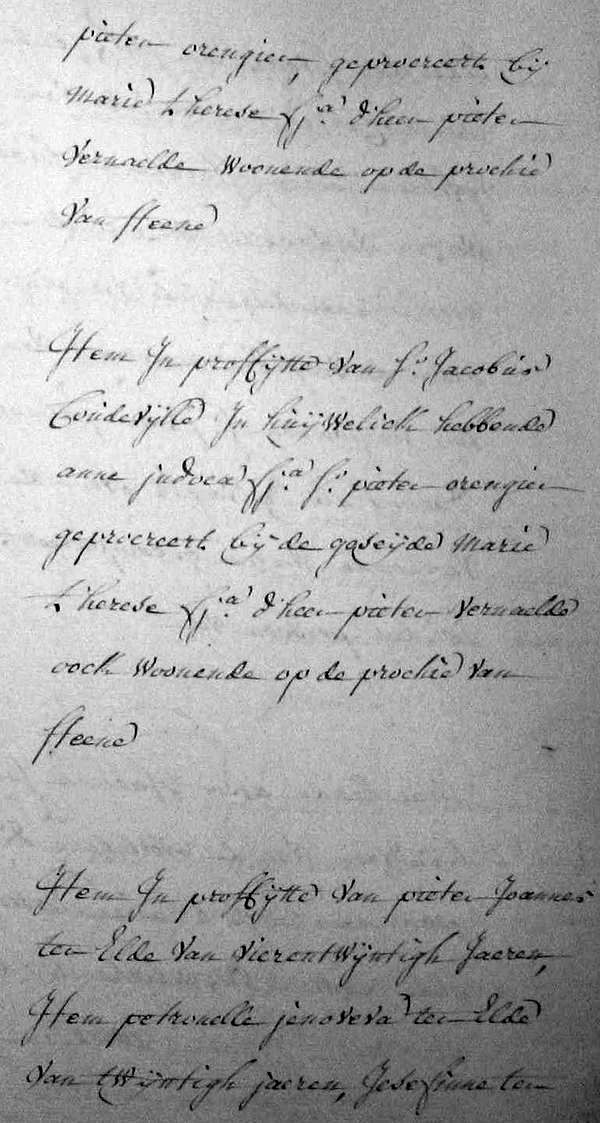 pieter orengier, geprocreert bij
Marie therese f.a d'heer pieter
Vernaelde Woonende op de prochie
Van steene
Item In proffijtte Van sr. Jacobus
Coudevylle In huijWelick hebbende
anne judoca f.a sr. pieter orengier
geprocreert bij de geseijde Marie
therese f.a d'heer pieter Vernaelde
oock Woonende op de prochie Van
steene
Item In proffijtte Van pieter Joannes
ter Elde Van VierentWijntigh Jaeren,
Item petronelle jenoveva ter Elde
Van tWijntigh jaeren, Josephinne ter